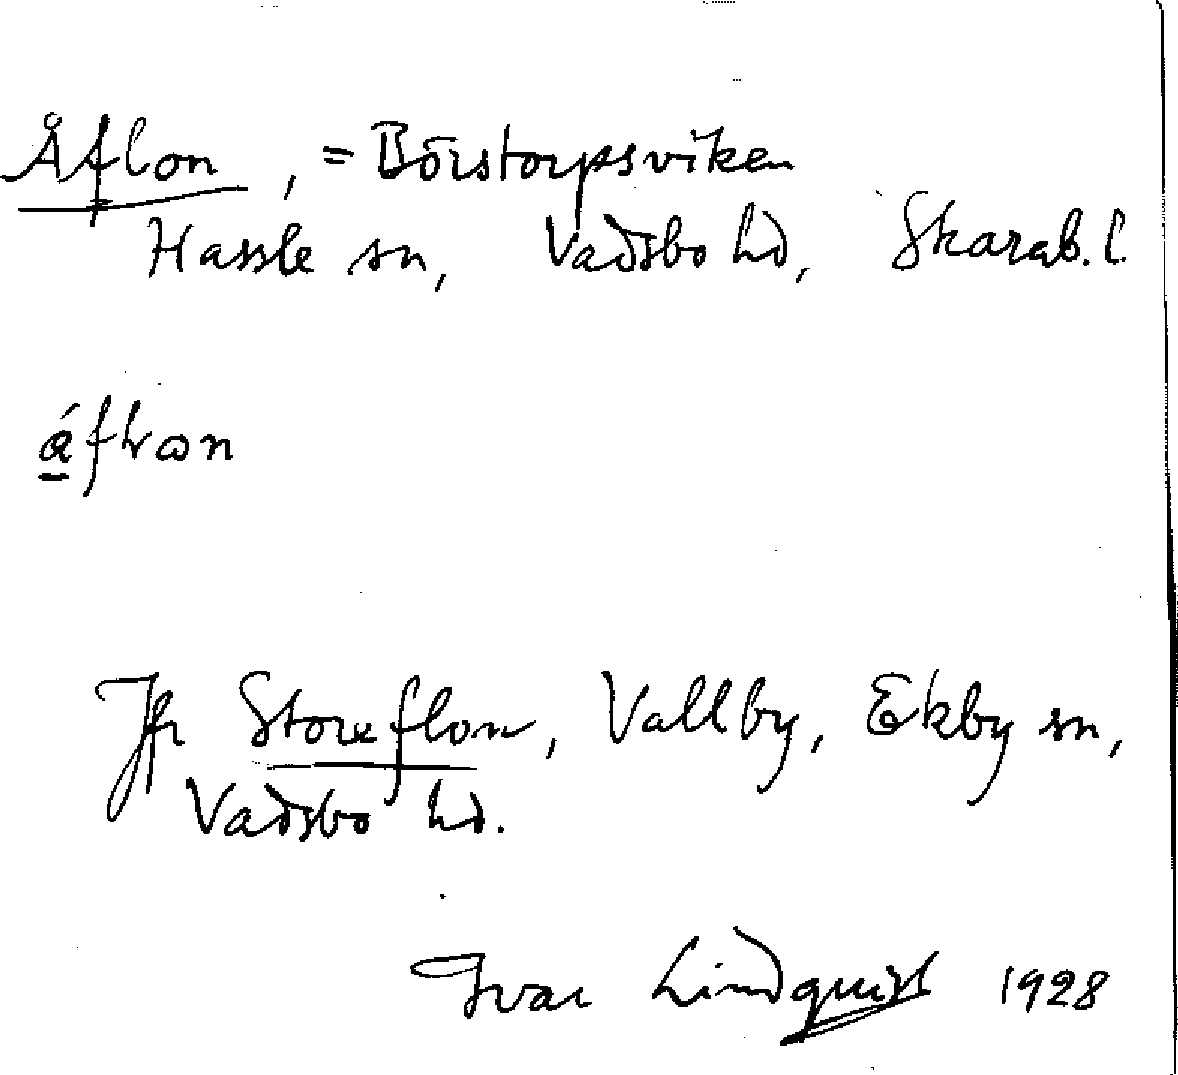 Åflon, = Börstorpsviken
Hassle sn, Vadsbo hd, Skarab. l.
Jfr Storeflon, Vallby, Ekby sn,
Vadsbo hd.
Ivar Lindquist 1928